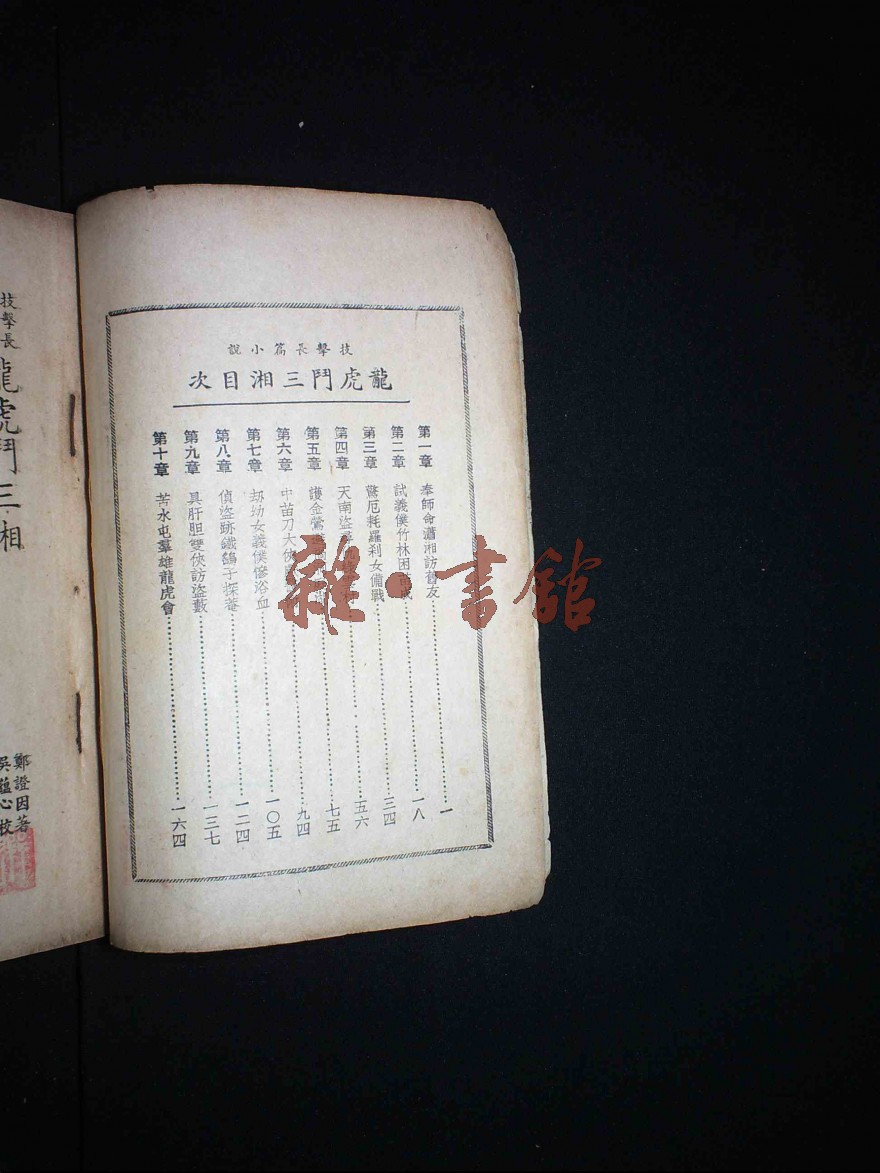 技擊長篇小說
龍虎鬥三湘目次
第一章 奉師命瀟湘訪舊友 一
第二章 試義僕竹林困 一八
第三章 驚厄耗羅刹女備戰 三四
第四章 天南盜 五六
第五章 護金鶯 七五
第六章 中苗刀大俠 九四
第七章 刼幼女義僕慘浴血 一〇五
第八章 偵盜跡鐵鷂子探菴 一二四
第九章 具肝胆雙俠訪盜藪 一三七
第十章 苦水屯羣雄龍虎會 一六四
技擊長
龍虎鬥三湘
鄭證因著
吳蘊心校
雜·書館